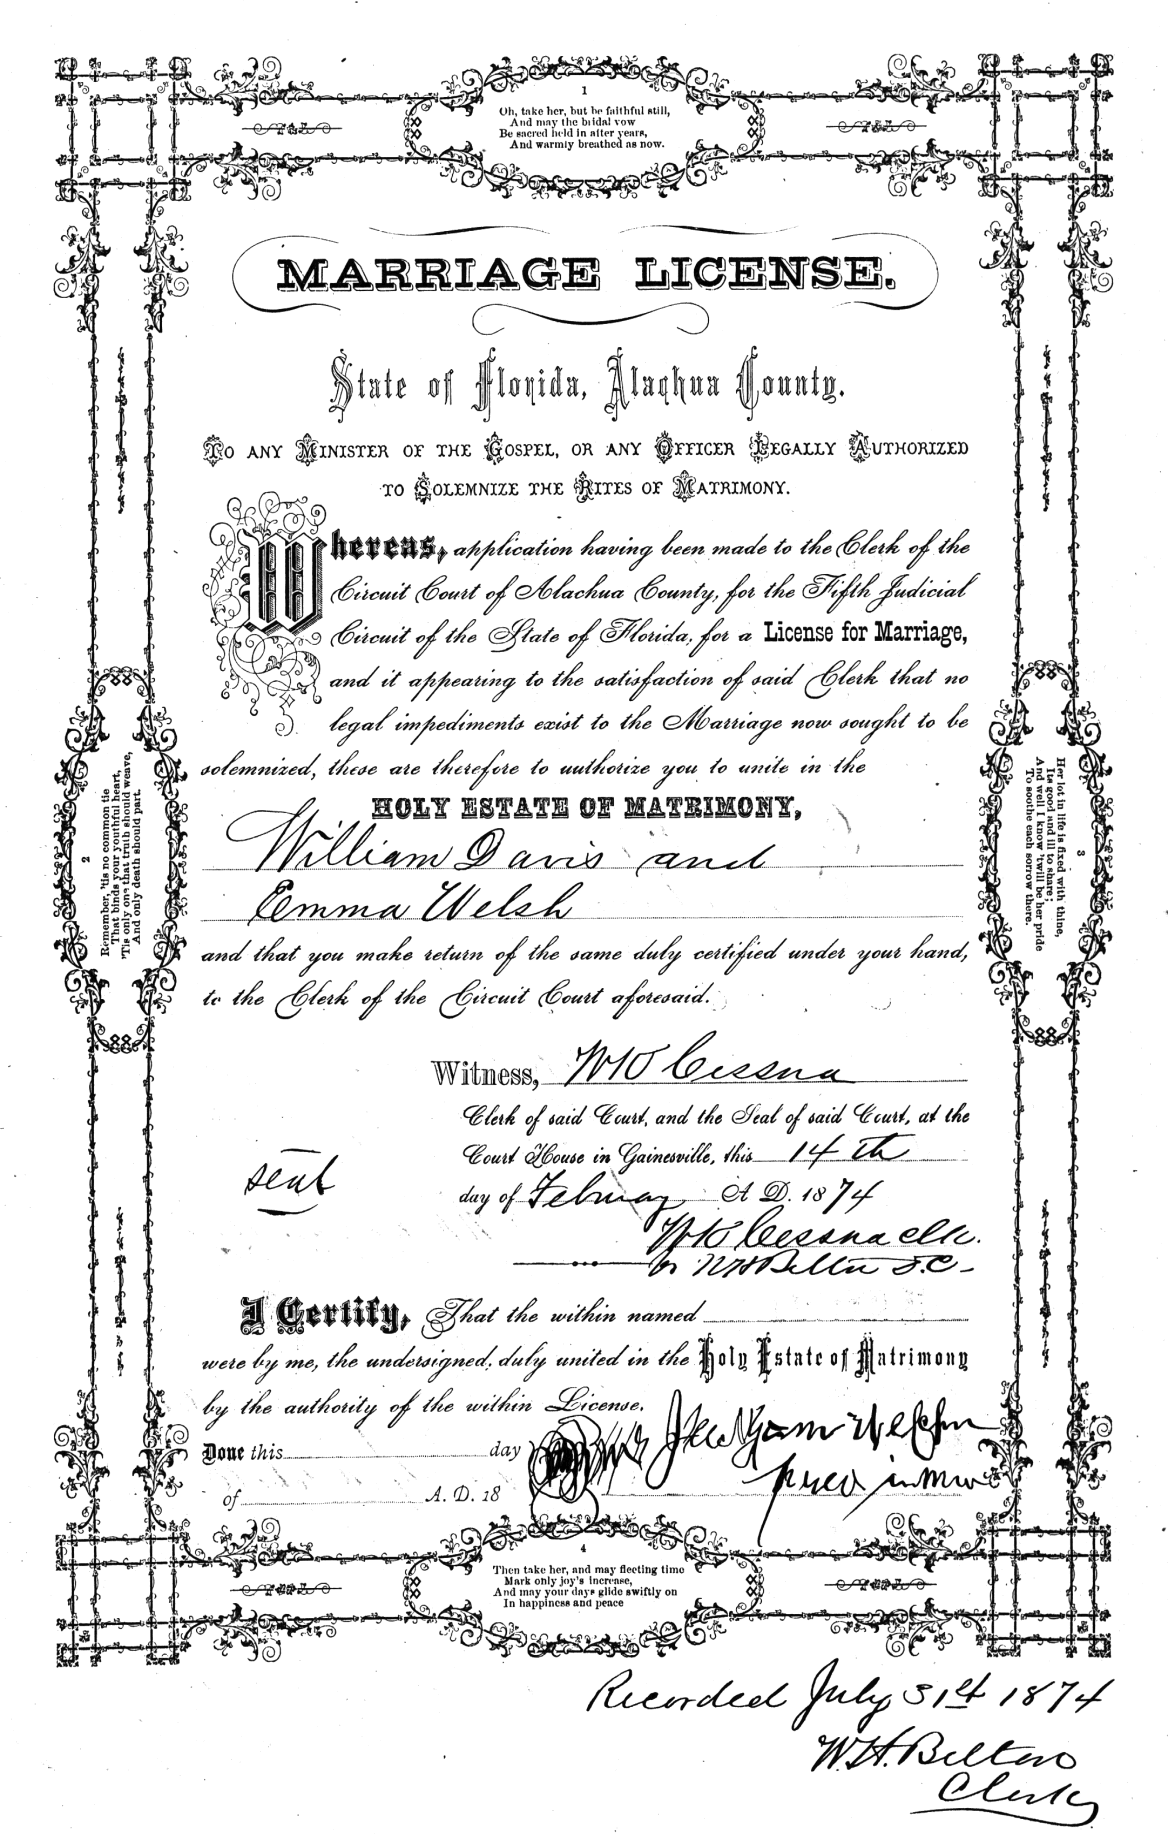 1
Oh, take her, but be faithful still,
And may the bridal vow
Be sacred held in after years,
And warmly breathed as now.
MARRIAGE LICENSE.
State of Florida, Alachua County.
TO ANY MINISTER OF THE GOSPEL, OR ANY OFFICER LEGALLY AUTHORIZED
TO SOLEMNIZE THE RITES OF MATRIMONY.
Whereas, application having been made to the Clerk of the
Circuit Court of Alachua County, for the Fifth Judicial
Circuit of the State of Florida, for a License for Marriage,
and it appearing to the satisfaction of said Clerk that no
legal impediments exist to the Marriage now sought to be
solemnized, these are therefore to authorize you to unite in the
HOLY ESTATE OF MATRIMONY,
William Davis and
Emma Welsh
and that you make return of the same duly certified under your hand,
to the Clerk of the Circuit Court aforesaid.
2
Remember, 'tis no common tie
That binds your youthful heart,
'Tis only one that truth should weave,
And only death should part.
3
Her lot in life is fixed with thine,
Its good and ill to share;
And well I know 'twill be her pride
To soothe each sorrow there.
Witness, W K Cessna
Clerk of said Court, and the Seal of said Court, at the
Court House in Gainesville, this 14th
seal
day of February A. D. 1874
W K Cessna Clk.
W H Belton D.C.
I Certify, That the within named
were by me, the undersigned, duly united in the Holy Estate of Matrimony
by the authority of the within License.
Done this day
of A. D. 18
4
Then take her, and may fleeting time
Mark only joy's increase,
And may your days glide swiftly on
In happiness and peace
Recorded July 31st 1874
W. H. Belton
Clerk